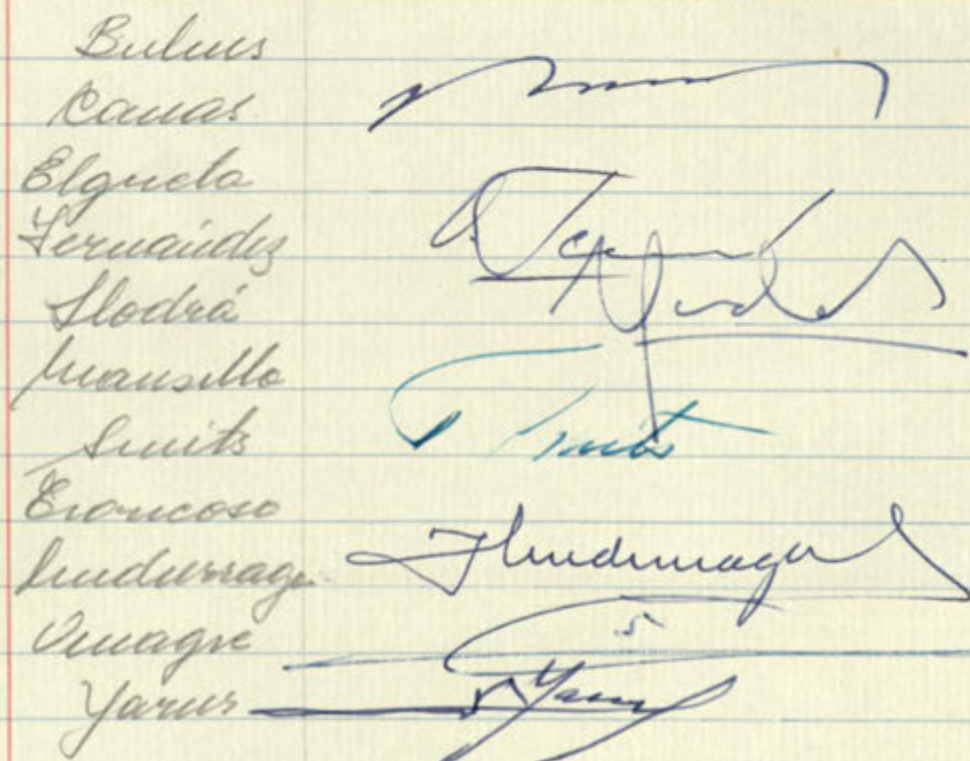 Bulnes
Canas
Elgueta
Fernández
Llodrá
Mansilla
Smits
Smits
Troncoso
Undurraga
Undurraga
Vinagre
Yarur
Yarur